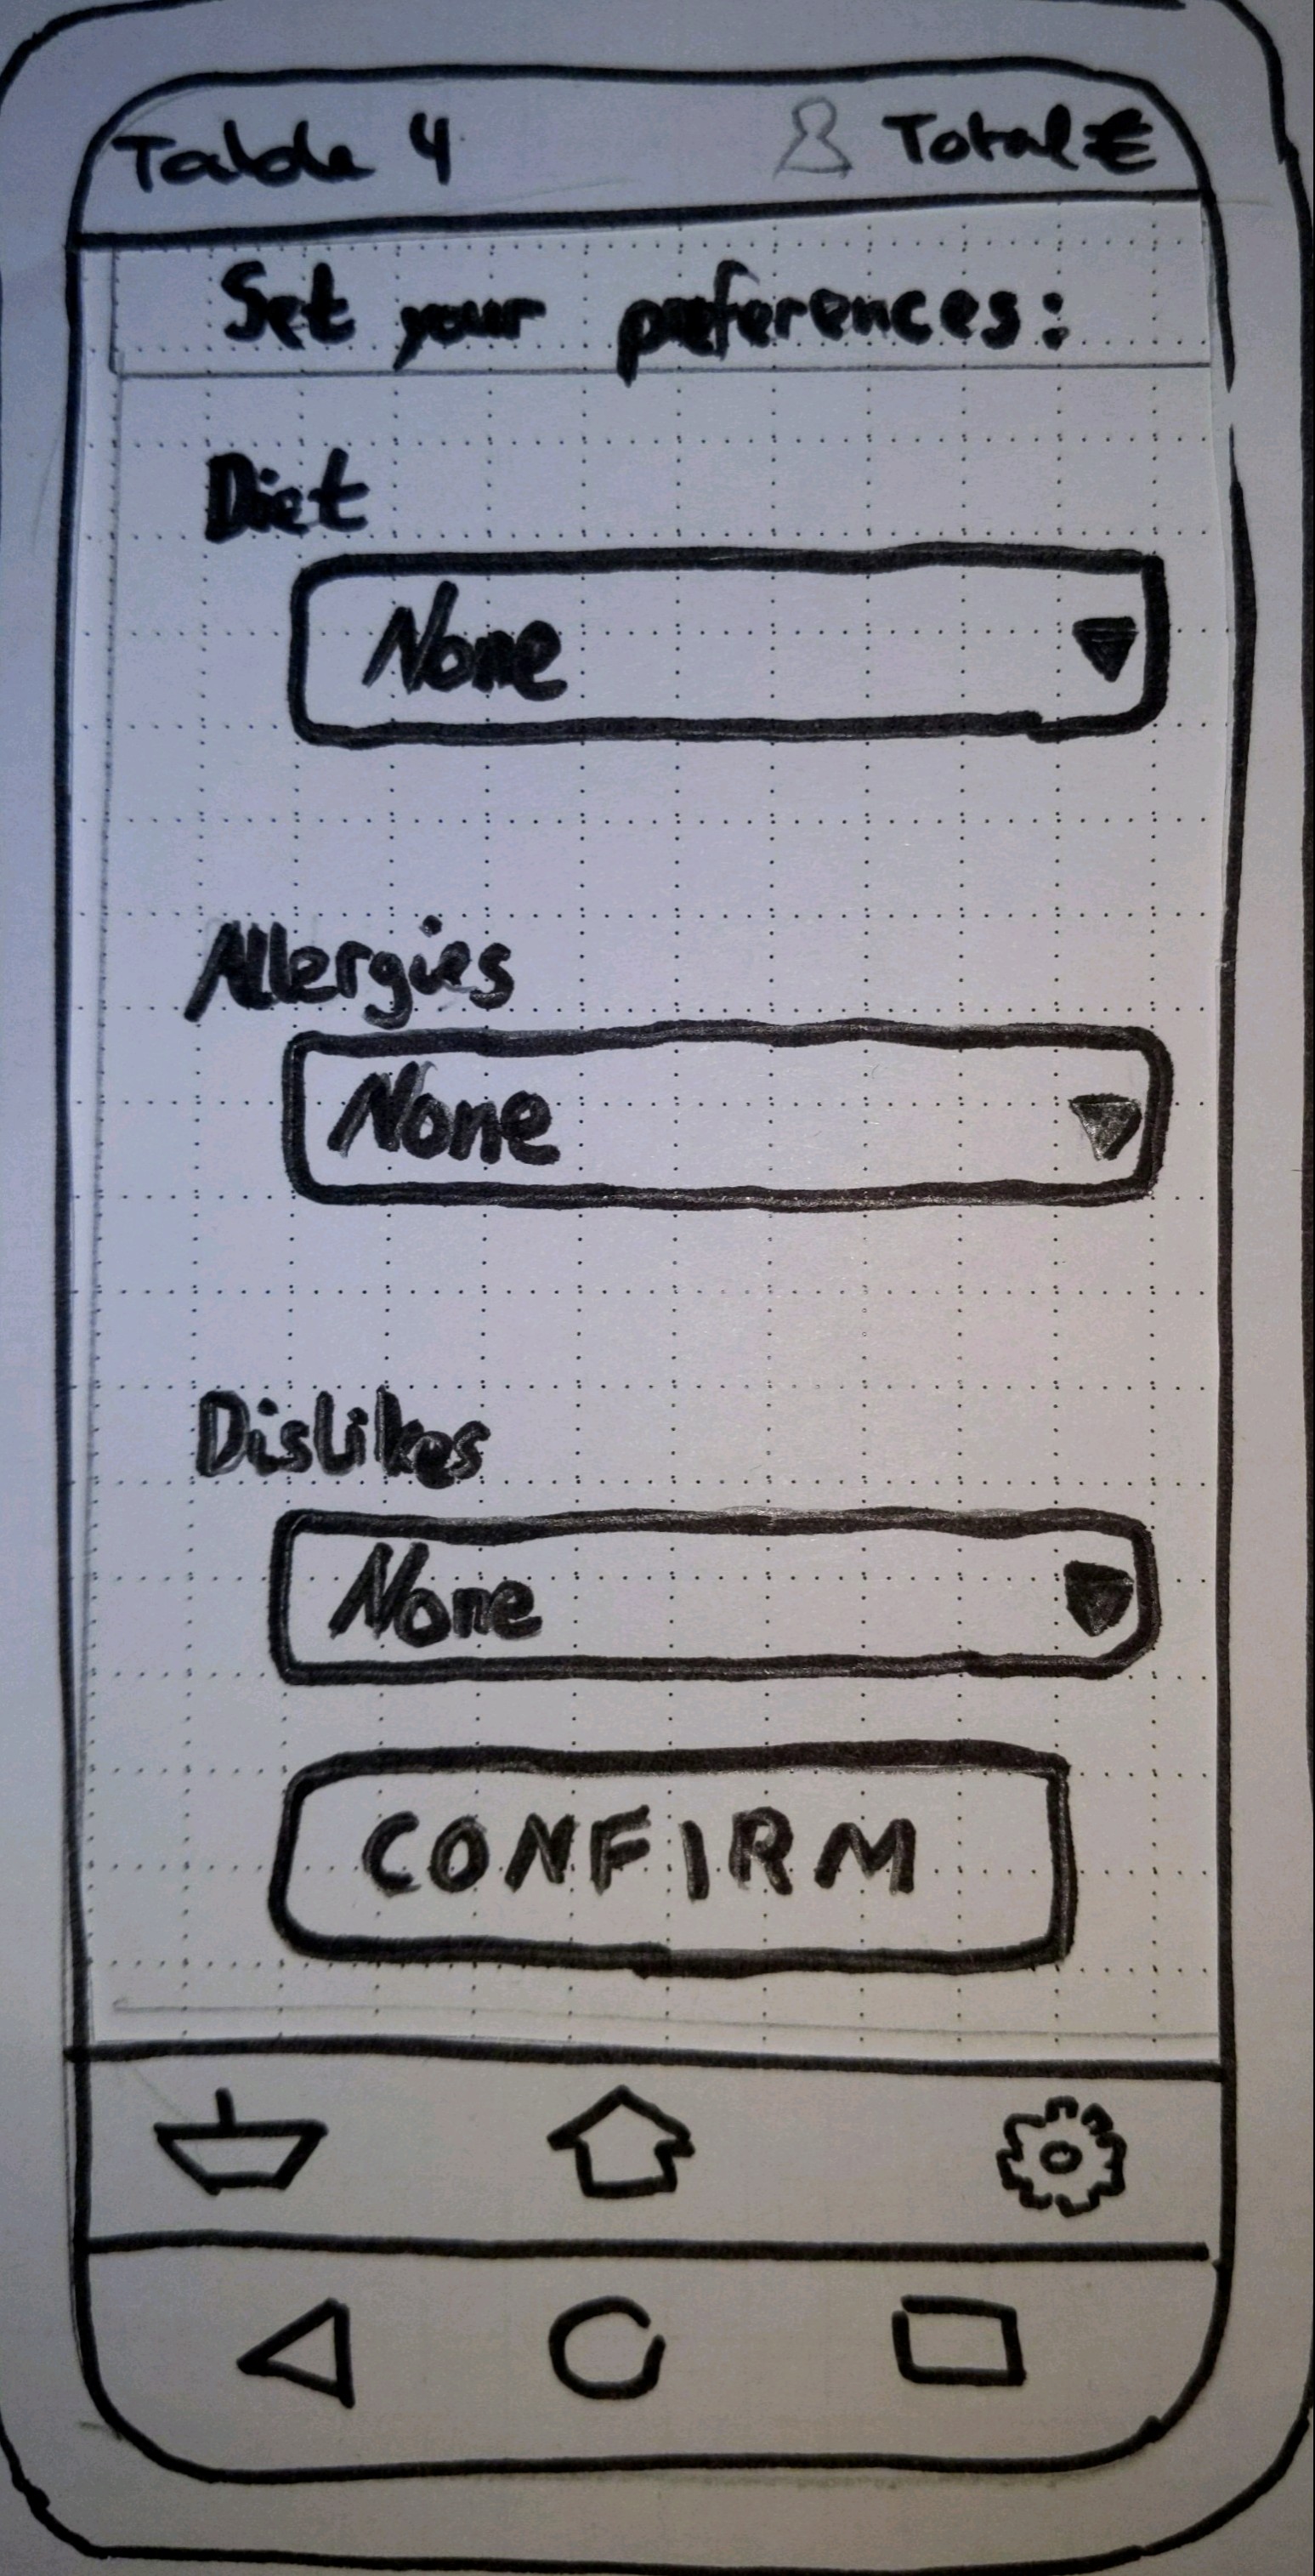 Table 4
Total €
Set your preferences:
Diet
None
Allergies
None
Dislikes
None
CONFIRM